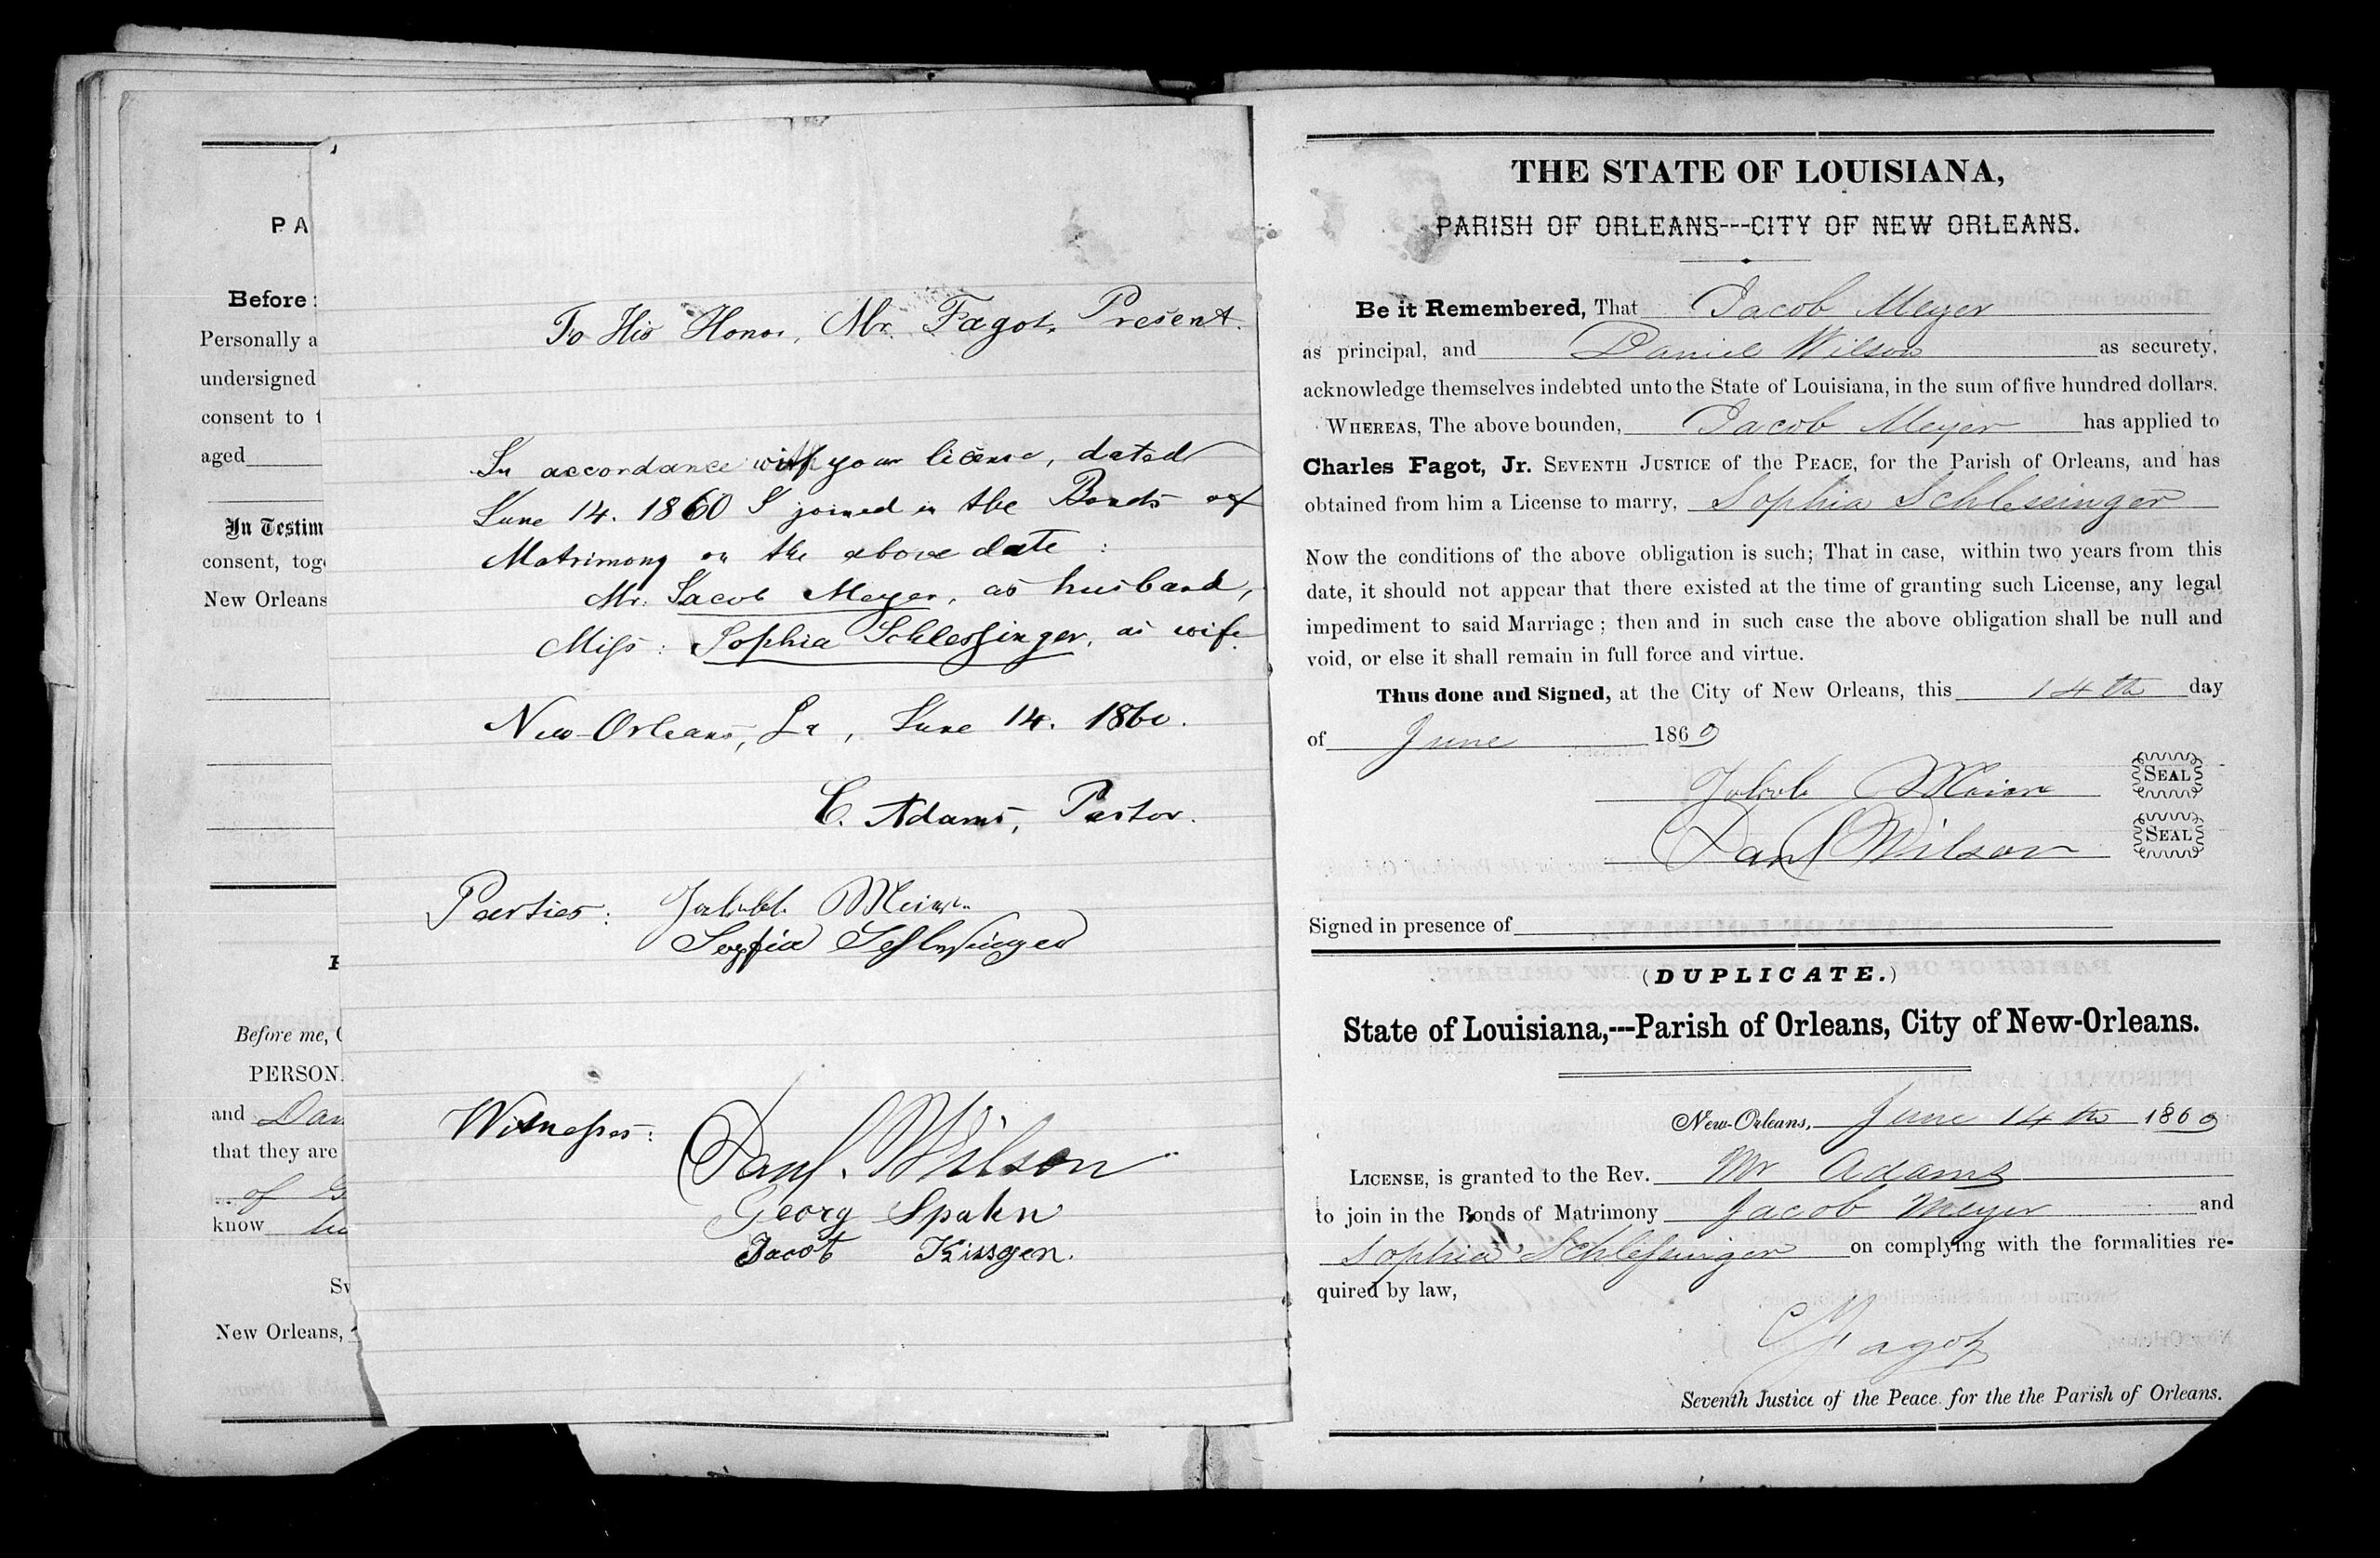 PA
Before
Personally a
undersigned
consent to t
aged
In Testim
consent, tog
New Orleans
Before me,
PERSON
and Dan
that they are
of G
know
Sw
New Orleans,
To His Honor, Mr. Fagot, Present.
In accordance with your license, dated
June 14. 1860 I joined in the Bonds of
Matrimony on the above date :
Mr. Jacob Meyer, as husband,
Miss : Sophia Schlessinger, as wife.
New-Orleans, La, June 14. 1860.
C. Adams, Pastor.
Parties: Jakob Meier
Sophia Schlessinger
Witnesses: Danl. Wilson
Georg Spahn
Jacob Kissgen.
THE STATE OF LOUISIANA,
PARISH OF ORLEANS---CITY OF NEW ORLEANS.
Be it Remembered, That Jacob Meyer
as principal, and Daniel Wilson as securety,
acknowledge themselves indebted unto the State of Louisiana, in the sum of five hundred dollars.
WHEREAS, The above bounden, Jacob Meyer has applied to
Charles Fagot, Jr. SEVENTH JUSTICE of the PEACE, for the Parish of Orleans, and has
obtained from him a License to marry, Sophia Schlessinger
Now the conditions of the above obligation is such; That in case, within two years from this
date, it should not appear that there existed at the time of granting such License, any legal
impediment to said Marriage; then and in such case the above obligation shall be null and
void, or else it shall remain in full force and virtue.
Thus done and Signed, at the City of New Orleans, this 14th day
of June 1860
Jakob Meier SEAL
Danl Wilson SEAL
Signed in presence of
(DUPLICATE.)
State of Louisiana,---Parish of Orleans, City of New-Orleans.
New-Orleans, June 14th 1860
LICENSE, is granted to the Rev. Mr Adams
to join in the Bonds of Matrimony Jacob Meyer and
Sophia Schlessinger on complying with the formalities re-
quired by law,
C Fagot
Seventh Justice of the Peace for the the Parish of Orleans.